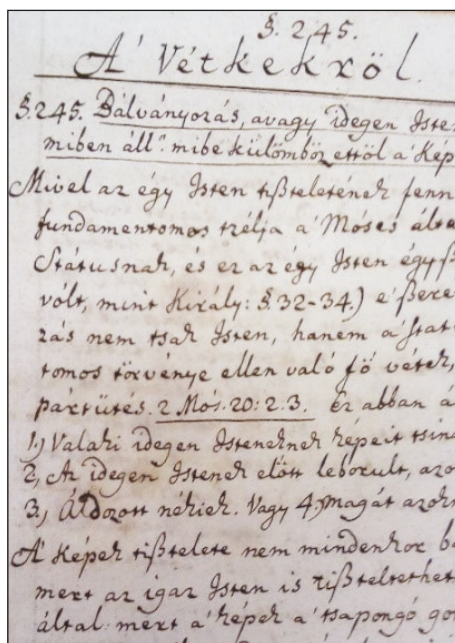 §. 245.
A' Vétkekröl.
§. 245. Bálványozás, avagy idegen Iste
miben áll" mibe külömböz ettöl a' Kép
Mivel az égy Isten tißteletének fenn
fundamentomos tzélja a' Móses álta
Státusnak, és ez az égy Isten égyß
vólt, mint Király: §. 32-34.) e' ßere
zás nem tsak Isten, hanem a' stat
tomos törvénye ellen való fö vétek,
pártütés. 2 Mós. 20: 2. 3. Ez abban á
1,) Valaki idegen Isteneknek képeit tsiná
2, Az idegen Istenek elött leborult, azo
3,) Áldozott nékiek. Vagy 4,) magát azokn
A' Képek tißtelete nem mindenkor b
mert az igaz Isten is tißteltethet
által: mert a' képek a' tsapongó go